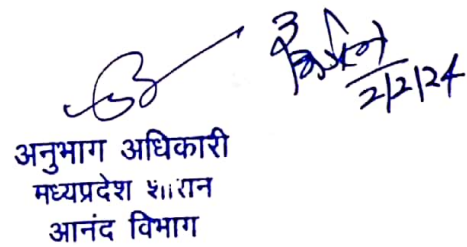 2/2/24
अनुभाग अधिकारी
मध्यप्रदेश शासन
आनंद विभाग